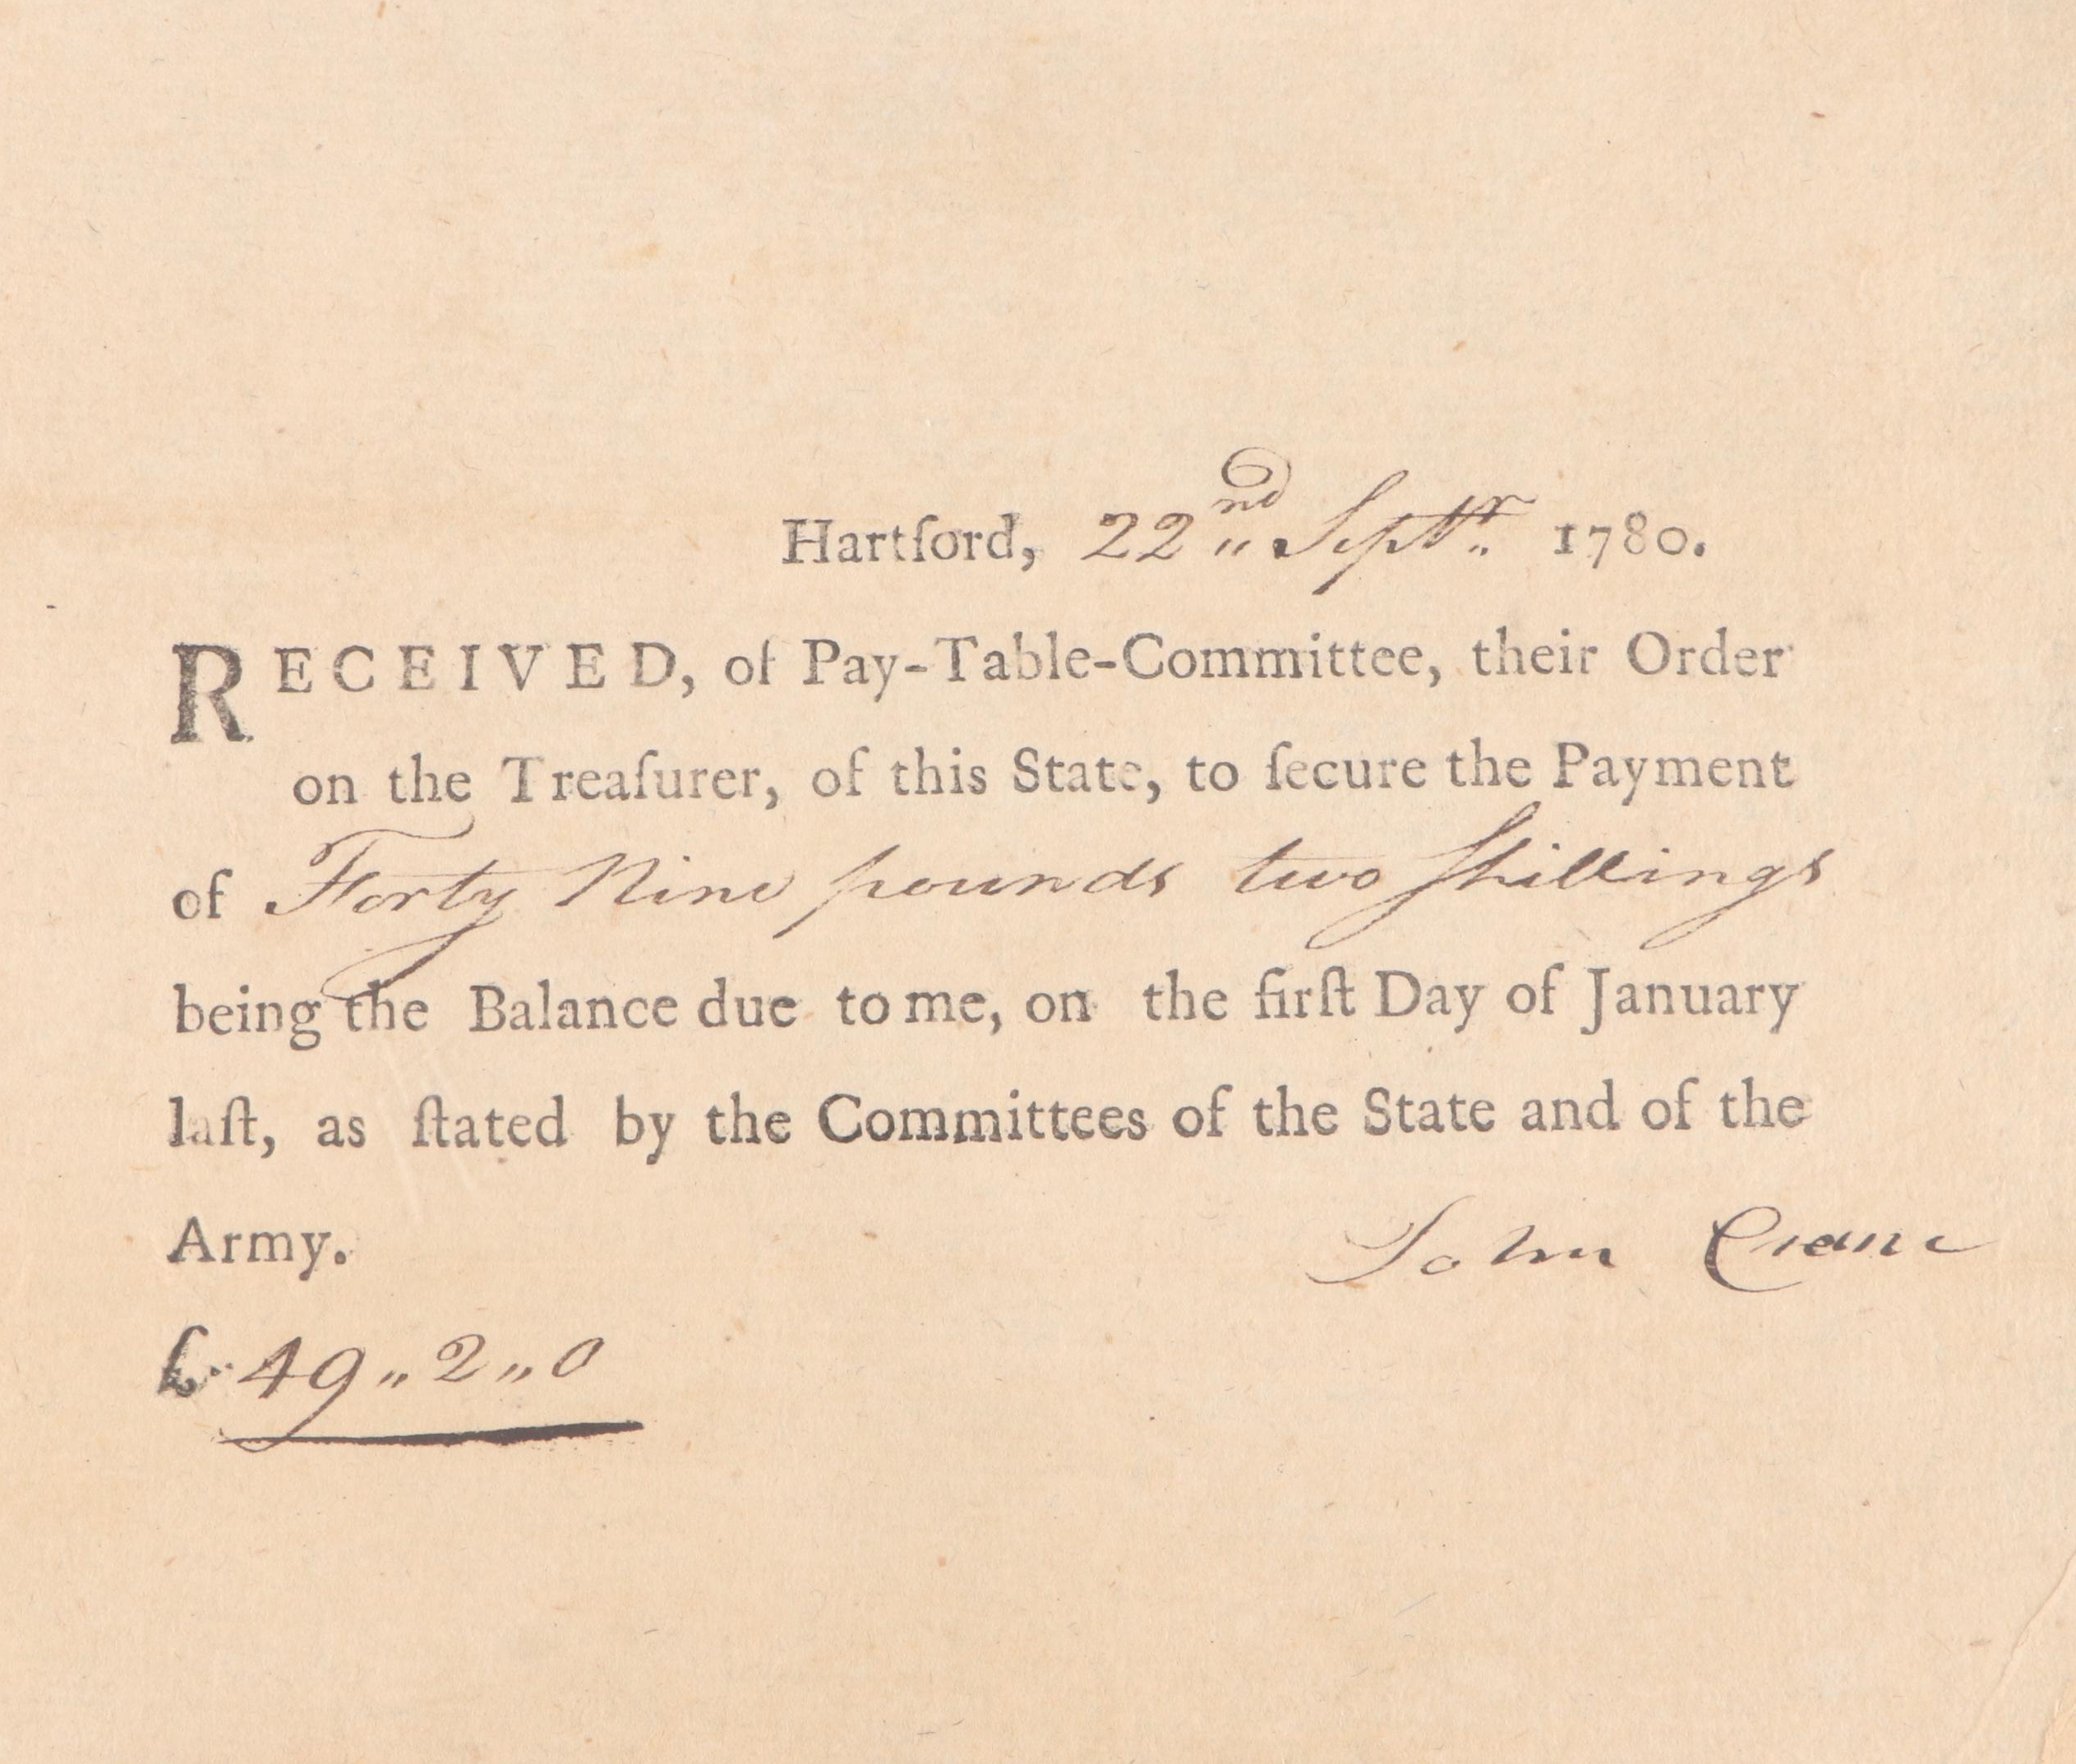 Hartford, 22nd„ Septr.. 1780.
RECEIVED, of Pay-Table-Committee, their Order
on the Treaſurer, of this State, to ſecure the Payment
of Forty Nine pounds two Shillings
being the Balance due to me, on the firſt Day of January
laſt, as ſtated by the Committees of the State and of the
Army.
John Crane
£. 49„2„0